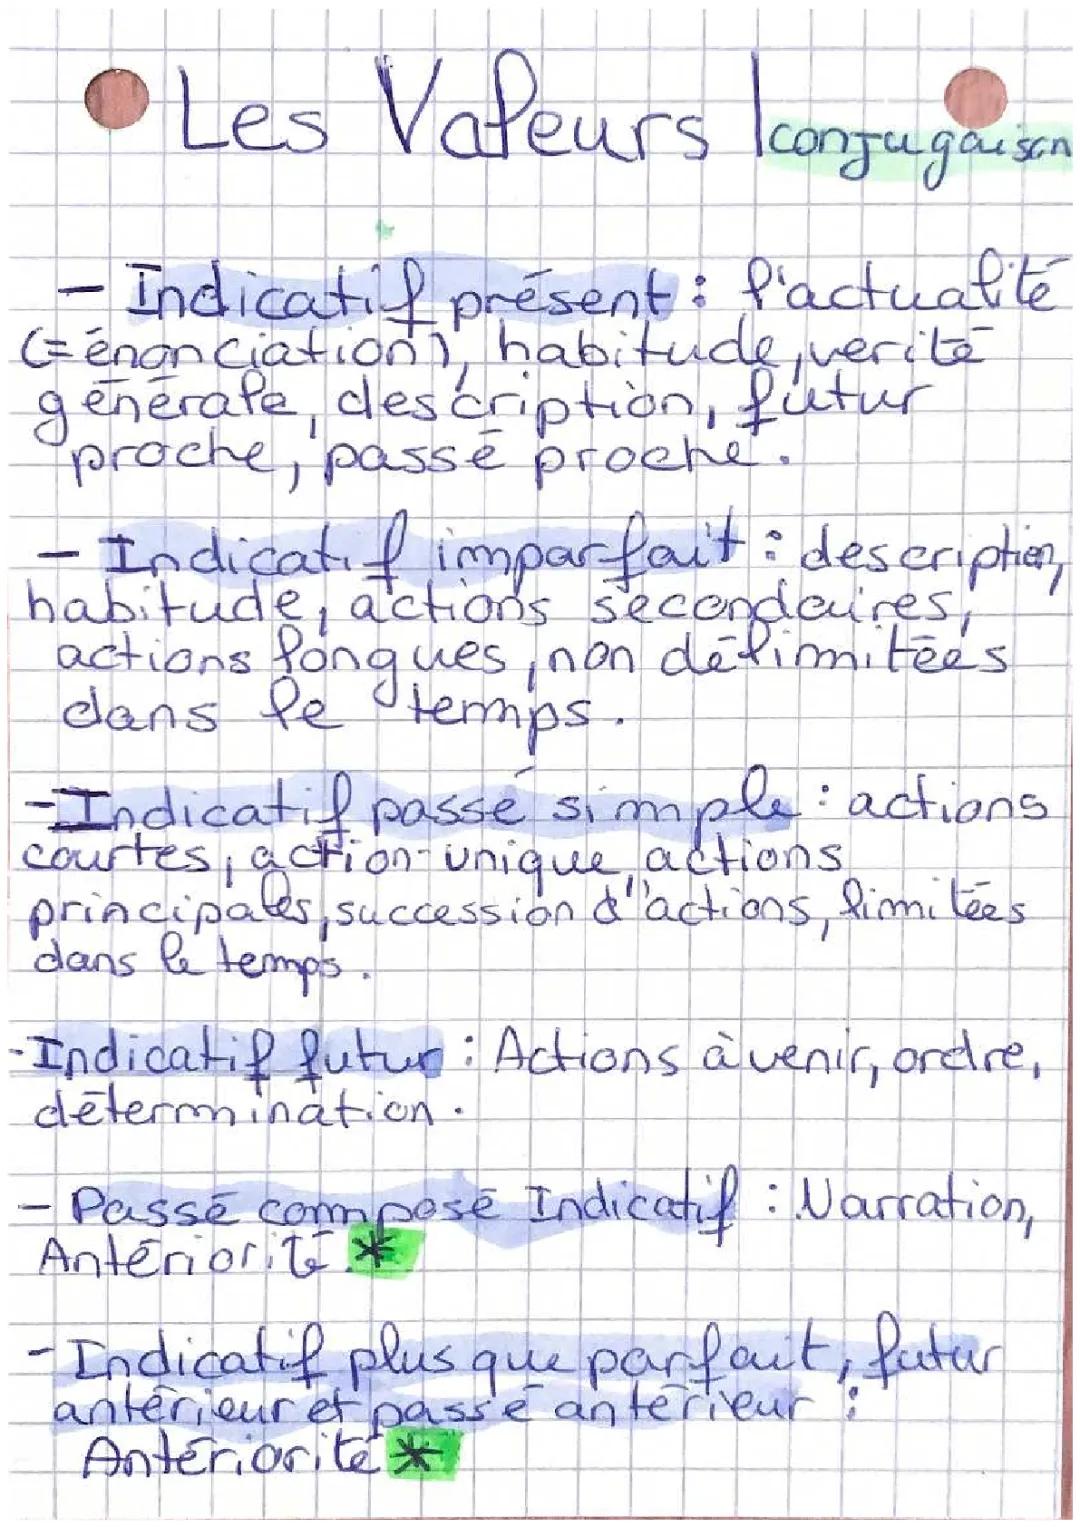 Les Valeurs | conjugaison
- Indicatif présent : l'actualité
(= énonciation), habitude, verité
générale, description, futur
proche, passé proche.
- Indicatif imparfait : description,
habitude, actions secondaires,
actions longues, non délimitées
dans le temps.
- Indicatif passé simple : actions
courtes, action unique, actions
principales, succession d'actions, limitées
dans le temps.
- Indicatif futur : Actions à venir, ordre,
détermination.
- Passé composé Indicatif : Narration,
Antériorité *
- Indicatif plus que parfait, futur
antérieur et passé antérieur :
Antériorité *